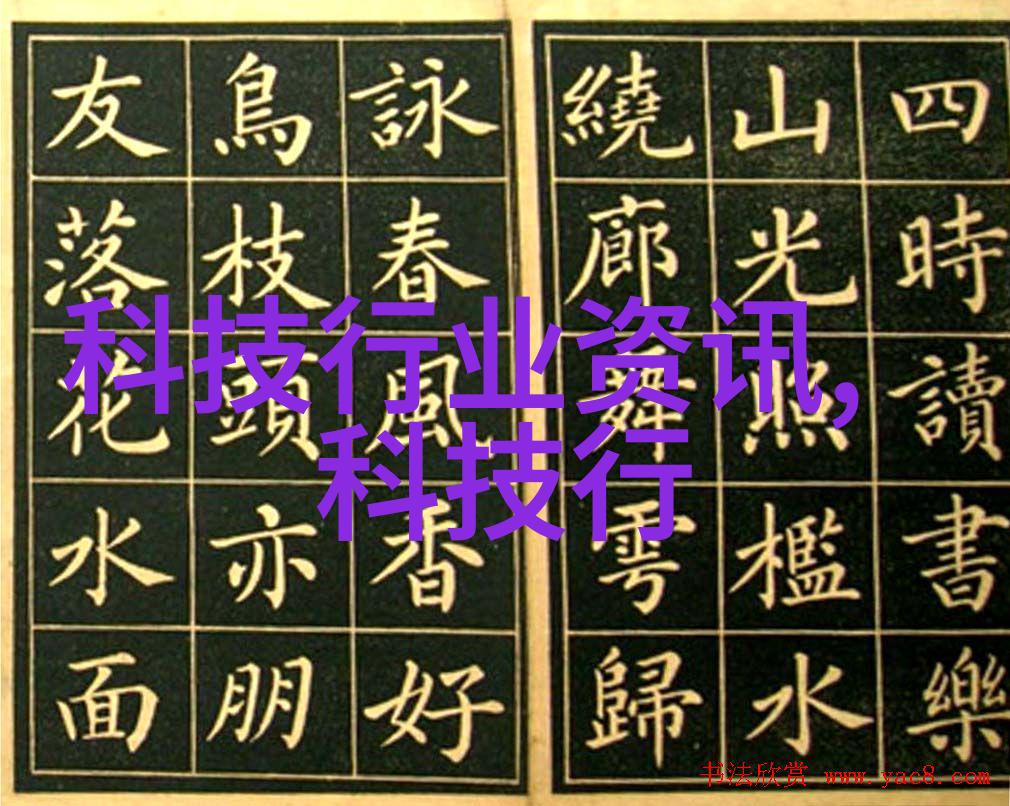 四時讀書樂
山光照檻水
繞廊舞雩歸
詠春風香好
鳥枝頭亦朋
友落花水面
科技行业资讯,
科技行
书法欣赏 www.yac8.com